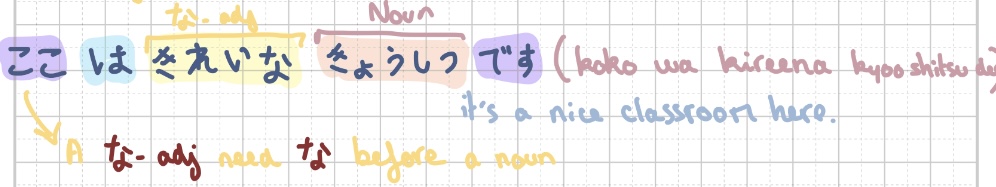 な-adj Noun
ここ は きれいな きょうしつ です (koko wa kireena kyooshitsu de
it's a nice classroom here.
A な-adj need な before a noun